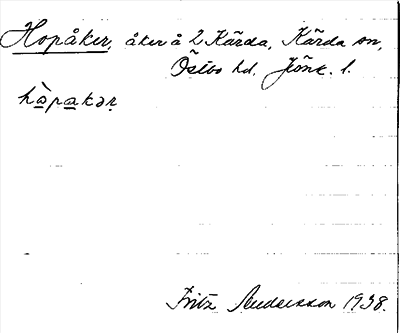 Hopåker, åker å 2 Kärda, Kärda sn,
Östbo hd. Jönk. l.
hàpakər
Fritz Andersson 1938.